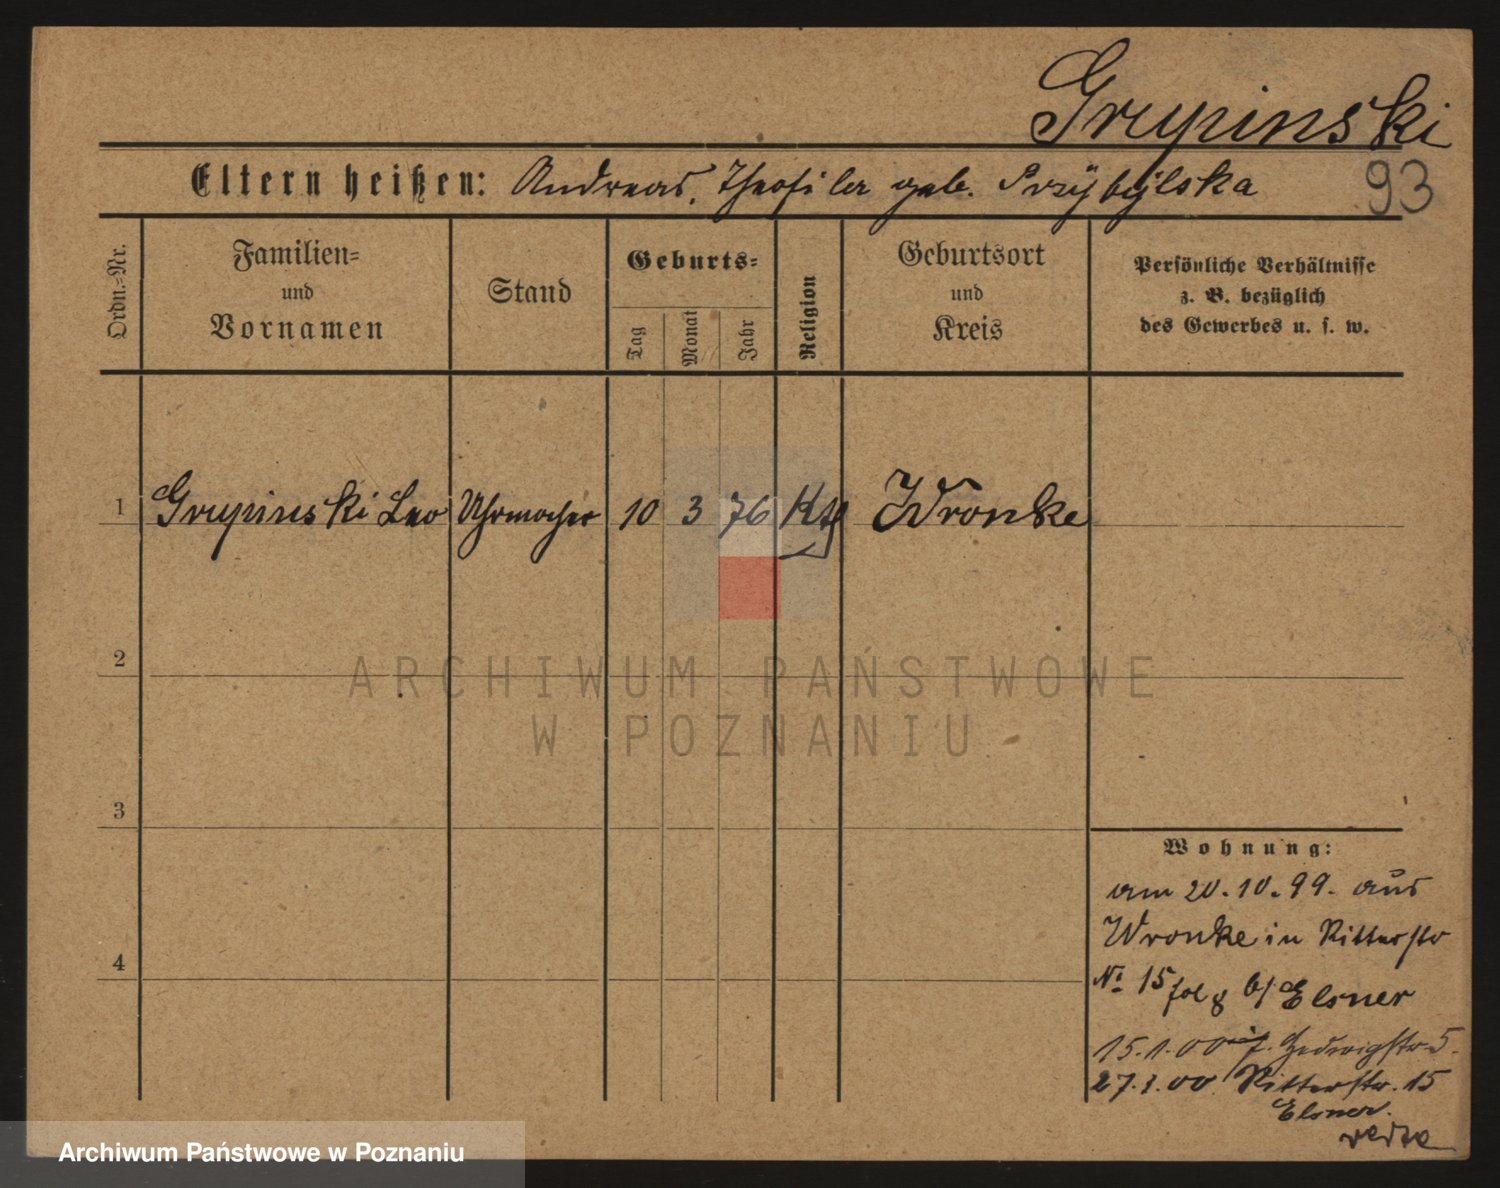 Grupinski
Eltern heißen: Andreas, Theofila geb. Przybylska
93
Ordn.-Nr.
Familien-
und
Vornamen
Stand
Geburts-
Tag
Monat
Jahr
Religion
Geburtsort
und
Kreis
Persönliche Verhältnisse
z. B. bezüglich
des Gewerbes u. s. w.
1 Grupinski Leo Uhrmacher 10 3 76 Kth Wronke
2
ARCHIWUM PAŃSTWOWE
W POZNANIU
3
Wohnung:
am 20.10.99. aus
Wronke in Ritterstr
4
No 15 b/ Elsner
15.1.00 Hedwigstr 5.
27.3.00 Ritterstr. 15
Elsner.
Archiwum Państwowe w Poznaniu